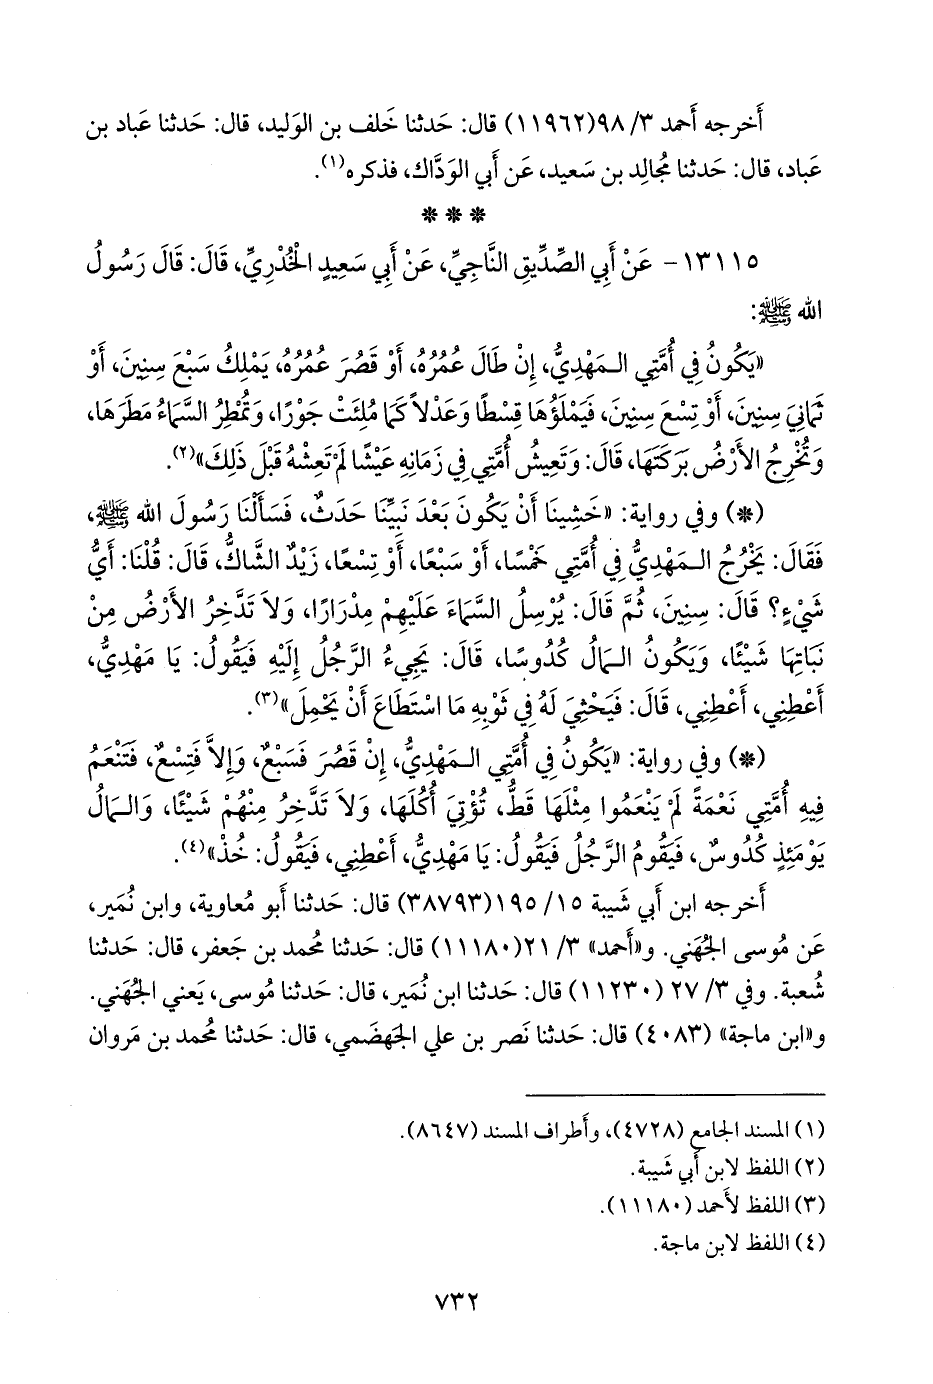 أَخرجه أَحمد ٣/ ٩٨(١١٩٦٢) قال: حَدثنا خَلف بن الوَليد، قال: حَدثنا عَباد بن
عَباد، قال: حَدثنا مُجالِد بن سَعيد، عَن أَبي الوَدَّاك، فذكره(١).
* * *
١٣١١٥- عَنْ أَبِي الصِّدِّيقِ النَّاجِيِّ، عَنْ أَبِي سَعِيدٍ الْخُدْرِيِّ، قَالَ: قَالَ رَسُولُ
الله ﷺ:
«يَكُونُ فِي أُمَّتِي الـمَهْدِيُّ، إِنْ طَالَ عُمُرُهُ، أَوْ قَصُرَ عُمُرُهُ، يَمْلِكُ سَبْعَ سِنِينَ، أَوْ
ثَمَانِيَ سِنِينَ، أَوْ تِسْعَ سِنِينَ، فَيَمْلَؤُهَا قِسْطًا وَعَدْلاً كَمَا مُلِئَتْ جَوْرًا، وَتُمْطِرُ السَّمَاءُ مَطَرَهَا،
وَتُخْرِجُ الأَرْضُ بَرَكَتَهَا، قَالَ: وَتَعِيشُ أُمَّتِي فِي زَمَانِهِ عَيْشًا لَمْ تَعِشْهُ قَبْلَ ذَلِكَ»(٢).
(*) وفي رواية: «خَشِينَا أَنْ يَكُونَ بَعْدَ نَبِيِّنَا حَدَثٌ، فَسَأَلْنَا رَسُولَ الله ﷺ،
فَقَالَ: يَخْرُجُ الـمَهْدِيُّ فِي أُمَّتِي خَمْسًا، أَوْ سَبْعًا، أَوْ تِسْعًا، زَيْدٌ الشَّاكُّ، قَالَ: قُلْنَا: أَيُّ
شَيْءٍ؟ قَالَ: سِنِينَ، ثُمَّ قَالَ: يُرْسِلُ السَّمَاءَ عَلَيْهِمْ مِدْرَارًا، وَلاَ تَدَّخِرُ الأَرْضُ مِنْ
نَبَاتِهَا شَيْئًا، وَيَكُونُ الـمَالُ كُدُوسًا، قَالَ: يَجِيءُ الرَّجُلُ إِلَيْهِ فَيَقُولُ: يَا مَهْدِيُّ،
أَعْطِنِي، أَعْطِنِي، قَالَ: فَيَحْثِيَ لَهُ فِي ثَوْبِهِ مَا اسْتَطَاعَ أَنْ يَحْمِلَ»(٣).
(*) وفي رواية: «يَكُونُ فِي أُمَّتِي الـمَهْدِيُّ، إِنْ قَصُرَ فَسَبْعٌ، وَإِلاَّ فَتِسْعٌ، فَتَنْعَمُ
فِيهِ أُمَّتِي نَعْمَةً لَمْ يَنْعَمُوا مِثْلَهَا قَطُّ، تُؤْتِي أُكُلَهَا، وَلاَ تَدَّخِرُ مِنْهُمْ شَيْئًا، وَالـمَالُ
يَوْمَئِذٍ كُدُوسٌ، فَيَقُومُ الرَّجُلُ فَيَقُولُ: يَا مَهْدِيُّ، أَعْطِنِي، فَيَقُولُ: خُذْ»(٤).
أَخرجه ابن أَبي شَيبة ١٥/ ١٩٥(٣٨٧٩٣) قال: حَدثنا أَبو مُعاوية، وابن نُمَير،
عَن مُوسى الجُهَني. و«أَحمد» ٣/ ٢١(١١١٨٠) قال: حَدثنا مُحمد بن جَعفر، قال: حَدثنا
شُعبة. وفي ٣/ ٢٧ (١١٢٣٠) قال: حَدثنا ابن نُمَير، قال: حَدثنا مُوسى، يَعني الجُهَني.
و«ابن ماجة» (٤٠٨٣) قال: حَدثنا نَصر بن علي الجَهضَمي، قال: حَدثنا مُحمد بن مَروان
(١) المسند الجامع (٤٧٢٨)، وأَطراف المسند (٨٦٤٧).
(٢) اللفظ لابن أَبي شَيبة.
(٣) اللفظ لأَحمد (١١١٨٠).
(٤) اللفظ لابن ماجة.
٧٣٢